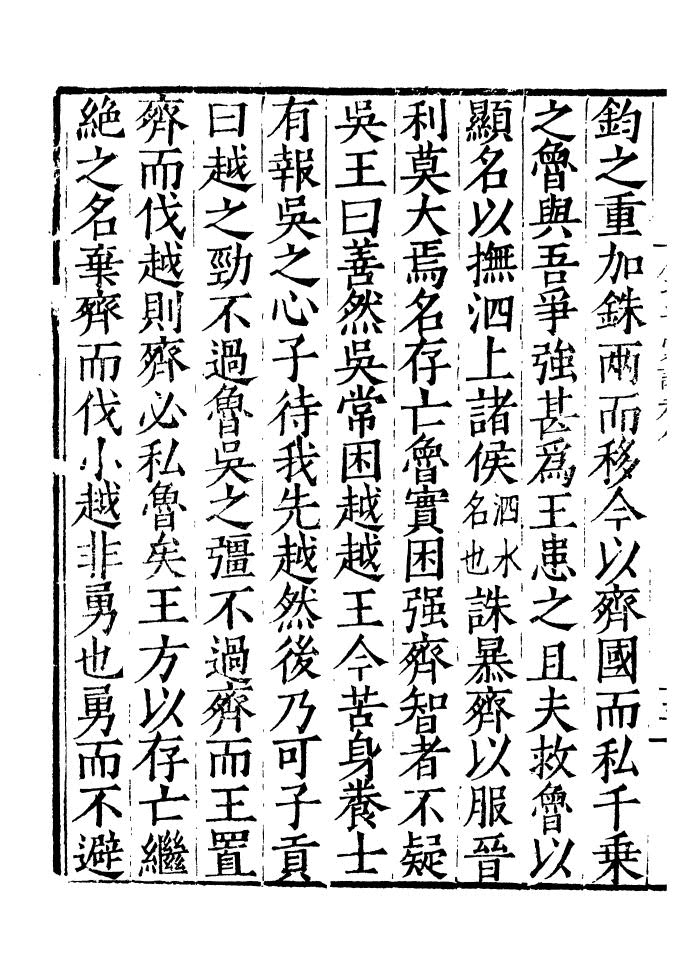 鈞之重加銖兩而移今以齊國而私千乗
之魯與吾爭強甚爲王患之且夫救魯以
顯名以撫泗上諸侯泗水名也誅暴齊以服晉
利莫大焉名存亡魯實困强齊智者不疑
吳王曰善然吳常困越越王今苦身養士
有報吳之心子待我先越然後乃可子貢
曰越之勁不過魯吳之彊不過齊而王置
齊而伐越則齊必私魯矣王方以存亡繼
絶之名棄齊而伐小越非勇也勇而不避